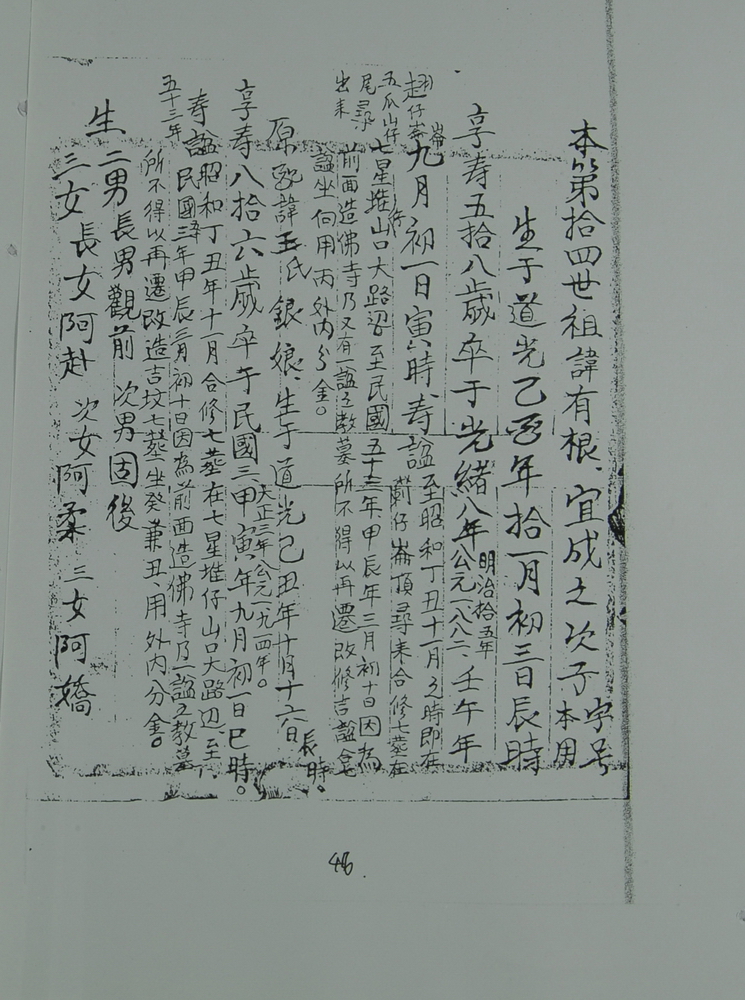 本第拾四世祖諱有根、宜成之次子字号本用
生于道光乙酉年拾一月初三日辰時
享寿五拾八歲卒于光緒八年明治拾五年公元一八八二、壬午年
九月初一日寅時、寿諡至昭和丁丑十一月之時即在
崙頂尋来合修七墓在
五瓜山仔
尾尋
出来
七星堆山口大路邊至民國五十三年甲辰年三月初十日因為
前面造佛寺乃又有一諡之教墓所不得以再遷改修吉諡
諡坐向用丙外內分金。
原配諱玉氏銀娘、生于道光己丑年十月十六日辰時。
享寿八拾六歲卒于民國三甲寅年九月初一日巳時。
大正三年公元一九一四年。
寿諡昭和丁丑年十一月合修七墓在七星堆仔山口大路边、至
五十三年
民國三年甲辰三月初十日因為前面造佛寺乃一諡之教墓
所不得以再遷改造吉坟七墓坐癸兼丑、用外內分金。
生二男長男觀前 次男固後
三女長女阿赴 次女阿柔 三女阿嬌
48